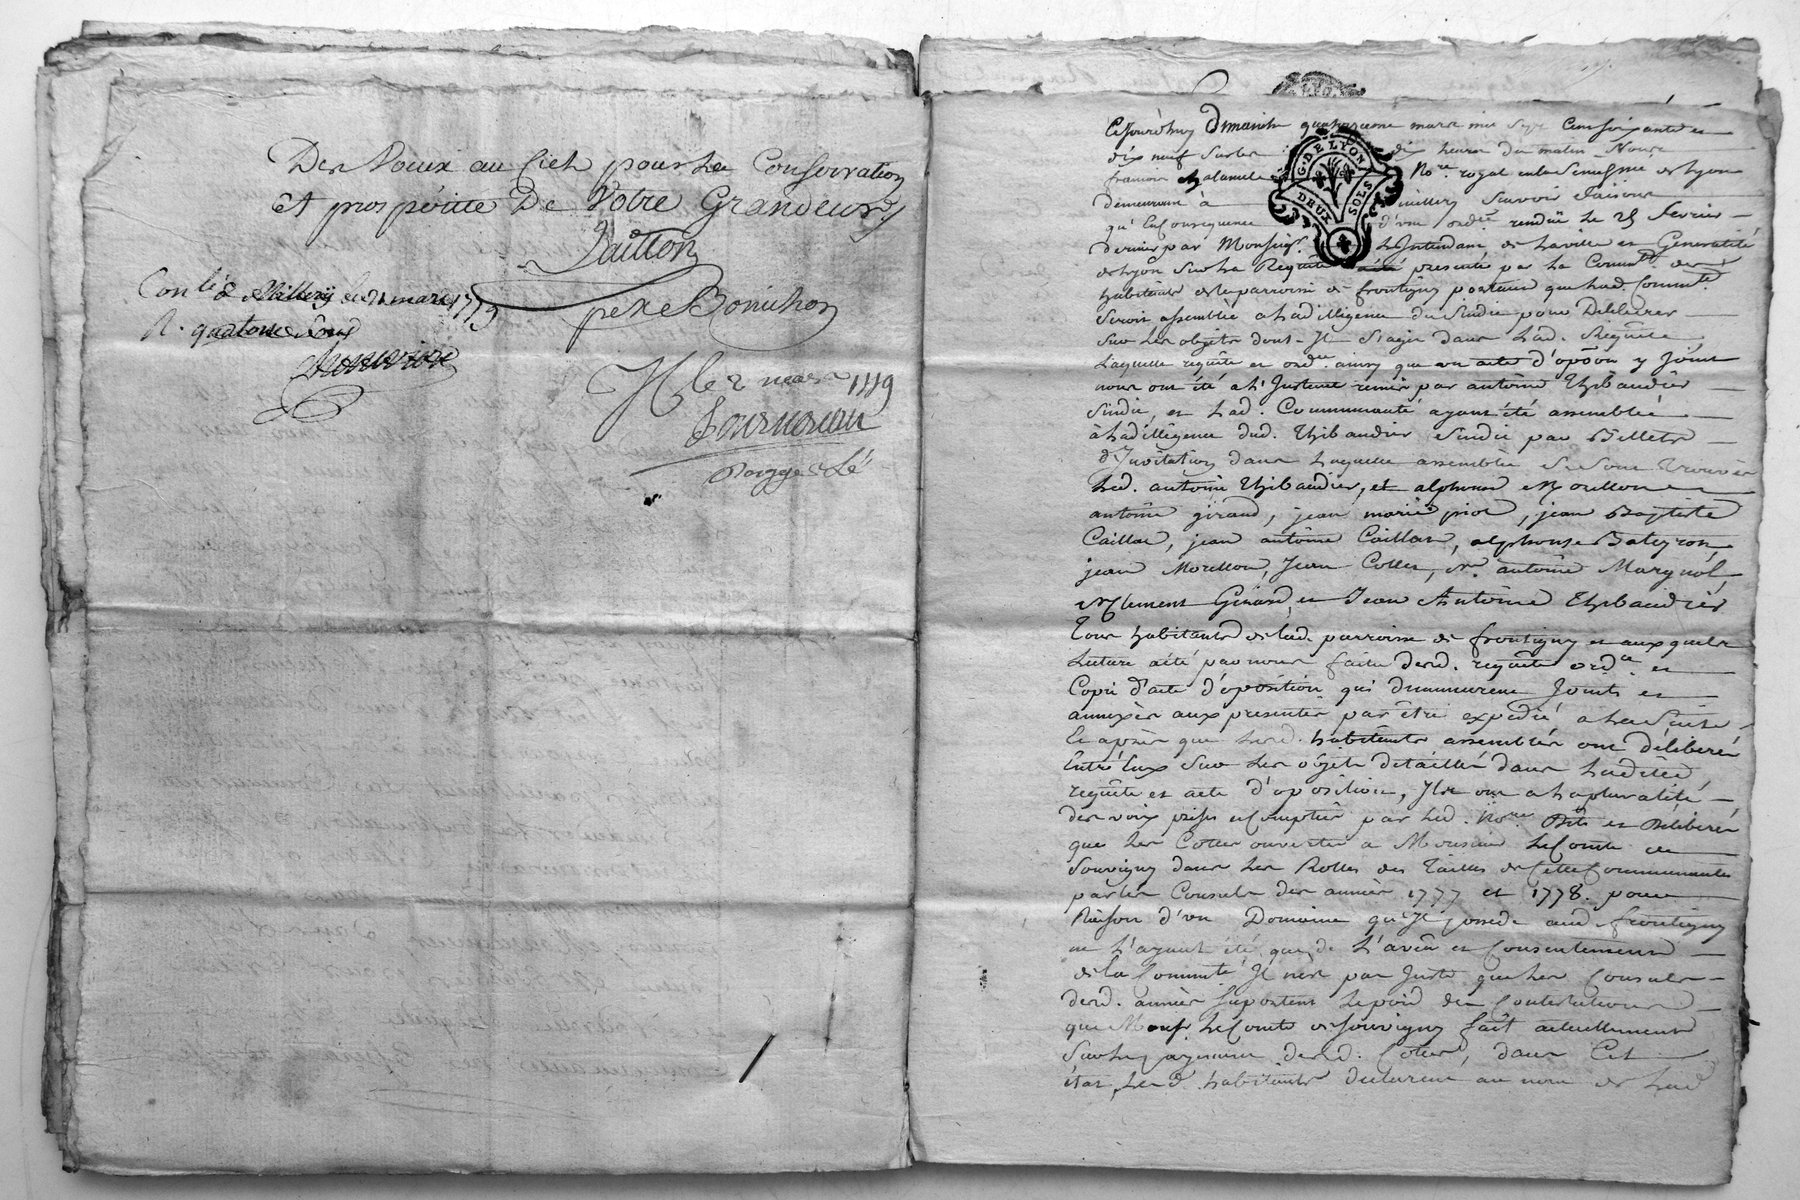 Des Voeux au Ciel pour La Conservation
Et prospéritté De Votre Grandeur
Con.lé à Millery le 21 mars 1779
R. quatorze sous
H le 2 mars 1779
G. DE LYON
DEUX SOLS
Cejourdhuy Dimanche quatorzieme mars mil sept cent soixante et
dix neuf sur les dix heures du matin Nous
françois No.re royal en la Senechée de Lyon
demeurant à Millery Savoir faisons
qu'en Consequence d'une ord.ce rendüe le 25 fevrier
dernier par Monseig.r L'Intendant de la ville et Generalité
de Lyon sur la Requête présenté par la Commté des
habitants de la parroisse de frontigny portant que lad. Commté
seroit assemblée a la dilligence du Sindic pour Deliberer
sur Les objets dont Il s'agit dans lad. Requête
Laquelle requête et ord.ce ainsy que un acte d'opôon y joint
nous ont été a l'Instant remis par antoine Thibaudier
sindic, et Lad. Communauté ayant été assemblée
à la dilligence dud. Thibaudier sindic par Billets
d'Invitation dans Laquelle assemblée se sont trouvés
Led. antoine Thibaudier, et alphonse Morellon
antoine giraud, jean marie priot, jean Baptiste
Caillot, jean antoine Caillot, alphonse Bateyron
jean Morellon, Jean Collet, Sr. antoine Marynol
Clement Girard, et Jean Antoine Thibaudier
Tous habitants de lad. parroisse de frontigny et auxquels
Lecture a été par nous faite desd. requête ord.ce et
Copie d'acte d'oposition qui demeureront Joints et
annexés aux presentes par être expedié a La Suite
Et après que Lesd. habitants assemblés ont déliberés
Entr'eux sur Les objets détaillés dans Ladite
requête et acte d'oposition, Ils ont a la pluralité
des voix prises et comptées par Led. No.re Dit et Déliberé
que Les Cottes ouvertes a Monsieur Le Comte de
Souvigny dans Les Rolles des Tailles de Cette Communauté
par les Consuls des années 1777 et 1778. pour
Raison d'un Domaine qu'Il possede aud. frontigny
ne L'ayant été que de L'aveu et Consentement
de la Commté Il n'est pas Juste que Les Consuls
desd. années suportent Le poid des Contestations
que Monsr. Le Comte de Souvigny fait actuellement
sur Le payement desd. Cottes, dans Cet
état Lesd. habitants declarent au nom de Lad